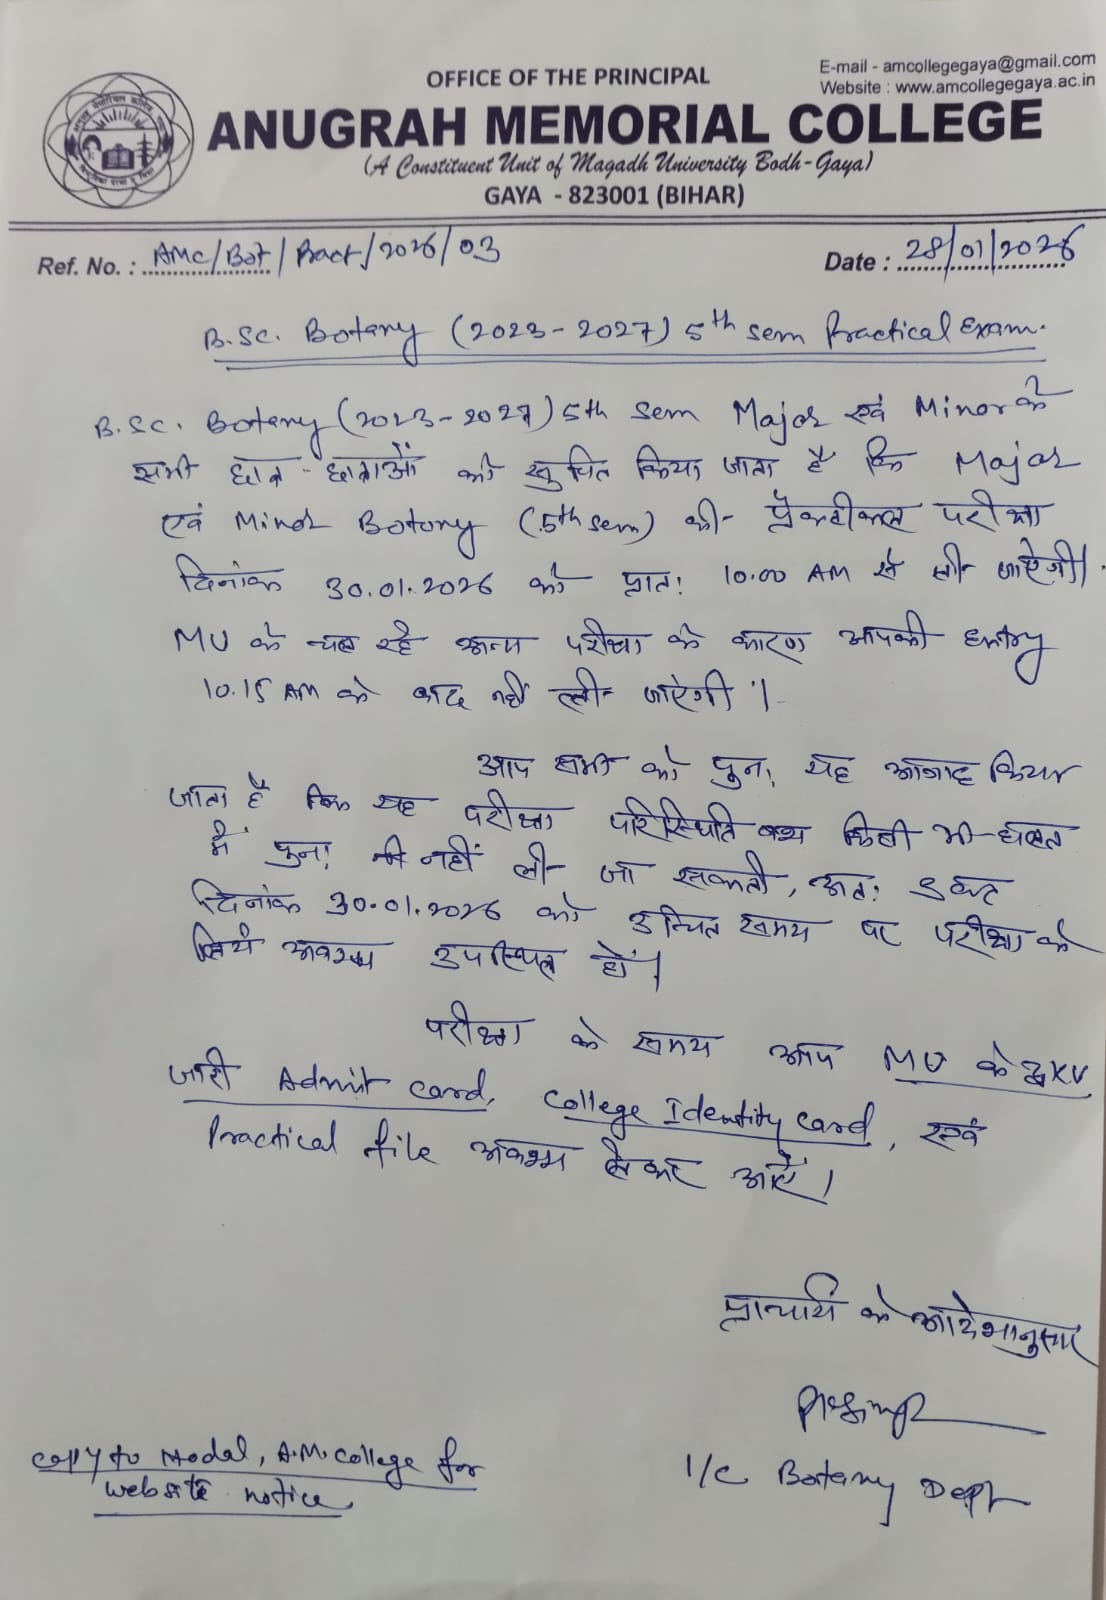 E-mail - amcollegegaya@gmail.com
Website : www.amcollegegaya.ac.in
OFFICE OF THE PRINCIPAL
ANUGRAH MEMORIAL COLLEGE
(A Constituent Unit of Magadh University Bodh-Gaya)
GAYA - 823001 (BIHAR)
Ref. No. : AMC/Bot/Pract/2026/03
Date : 28/01/2026
B.Sc. Botany (2023-2027) 5th sem Practical Exam.
B.Sc. Botany (2023-2027) 5th sem Major एवं Minor के
सभी छात्र-छात्राओं को सुचित किया जाता है कि Major
एवं Minor Botony (5th sem) की प्रैकटीकल परीक्षा
दिनांक 30.01.2026 को प्रातः 10.00 AM से ली जाऐगी।
MU के चल रहे अन्य परीक्षा के कारण आपकी Entry
10.15 AM के बाद नहीं ली जाऐगी।
आप सभी को पुनः यह आगाह किया
जाता है कि यह परीक्षा परिस्थिति वश किसी भी हालत
में पुनः नहीं ली जा सकती, अतः
दिनांक 30.01.2026 को उचित समय पर परीक्षा के
लिये अवश्य उपस्थित हों।
परीक्षा के समय आप MU के
जारी Admit card, College Identity card, एवं
Practical file अवश्य लेकर आऐं।
प्राचार्य के आदेशानुसार
I/C Botany Dept
Copy to Nodal, A.M. College for
website notice